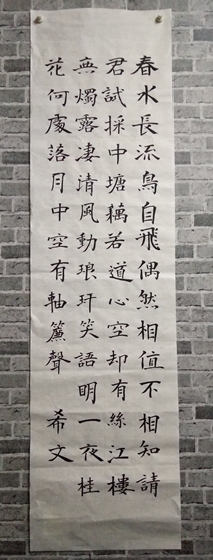 春水長流鳥自飛偶然相值不相知請
君試採中塘藕若道心空却有絲江樓
無燭露凄清風動琅玕笑語明一夜桂
花何處落月中空有軸簾聲 希文